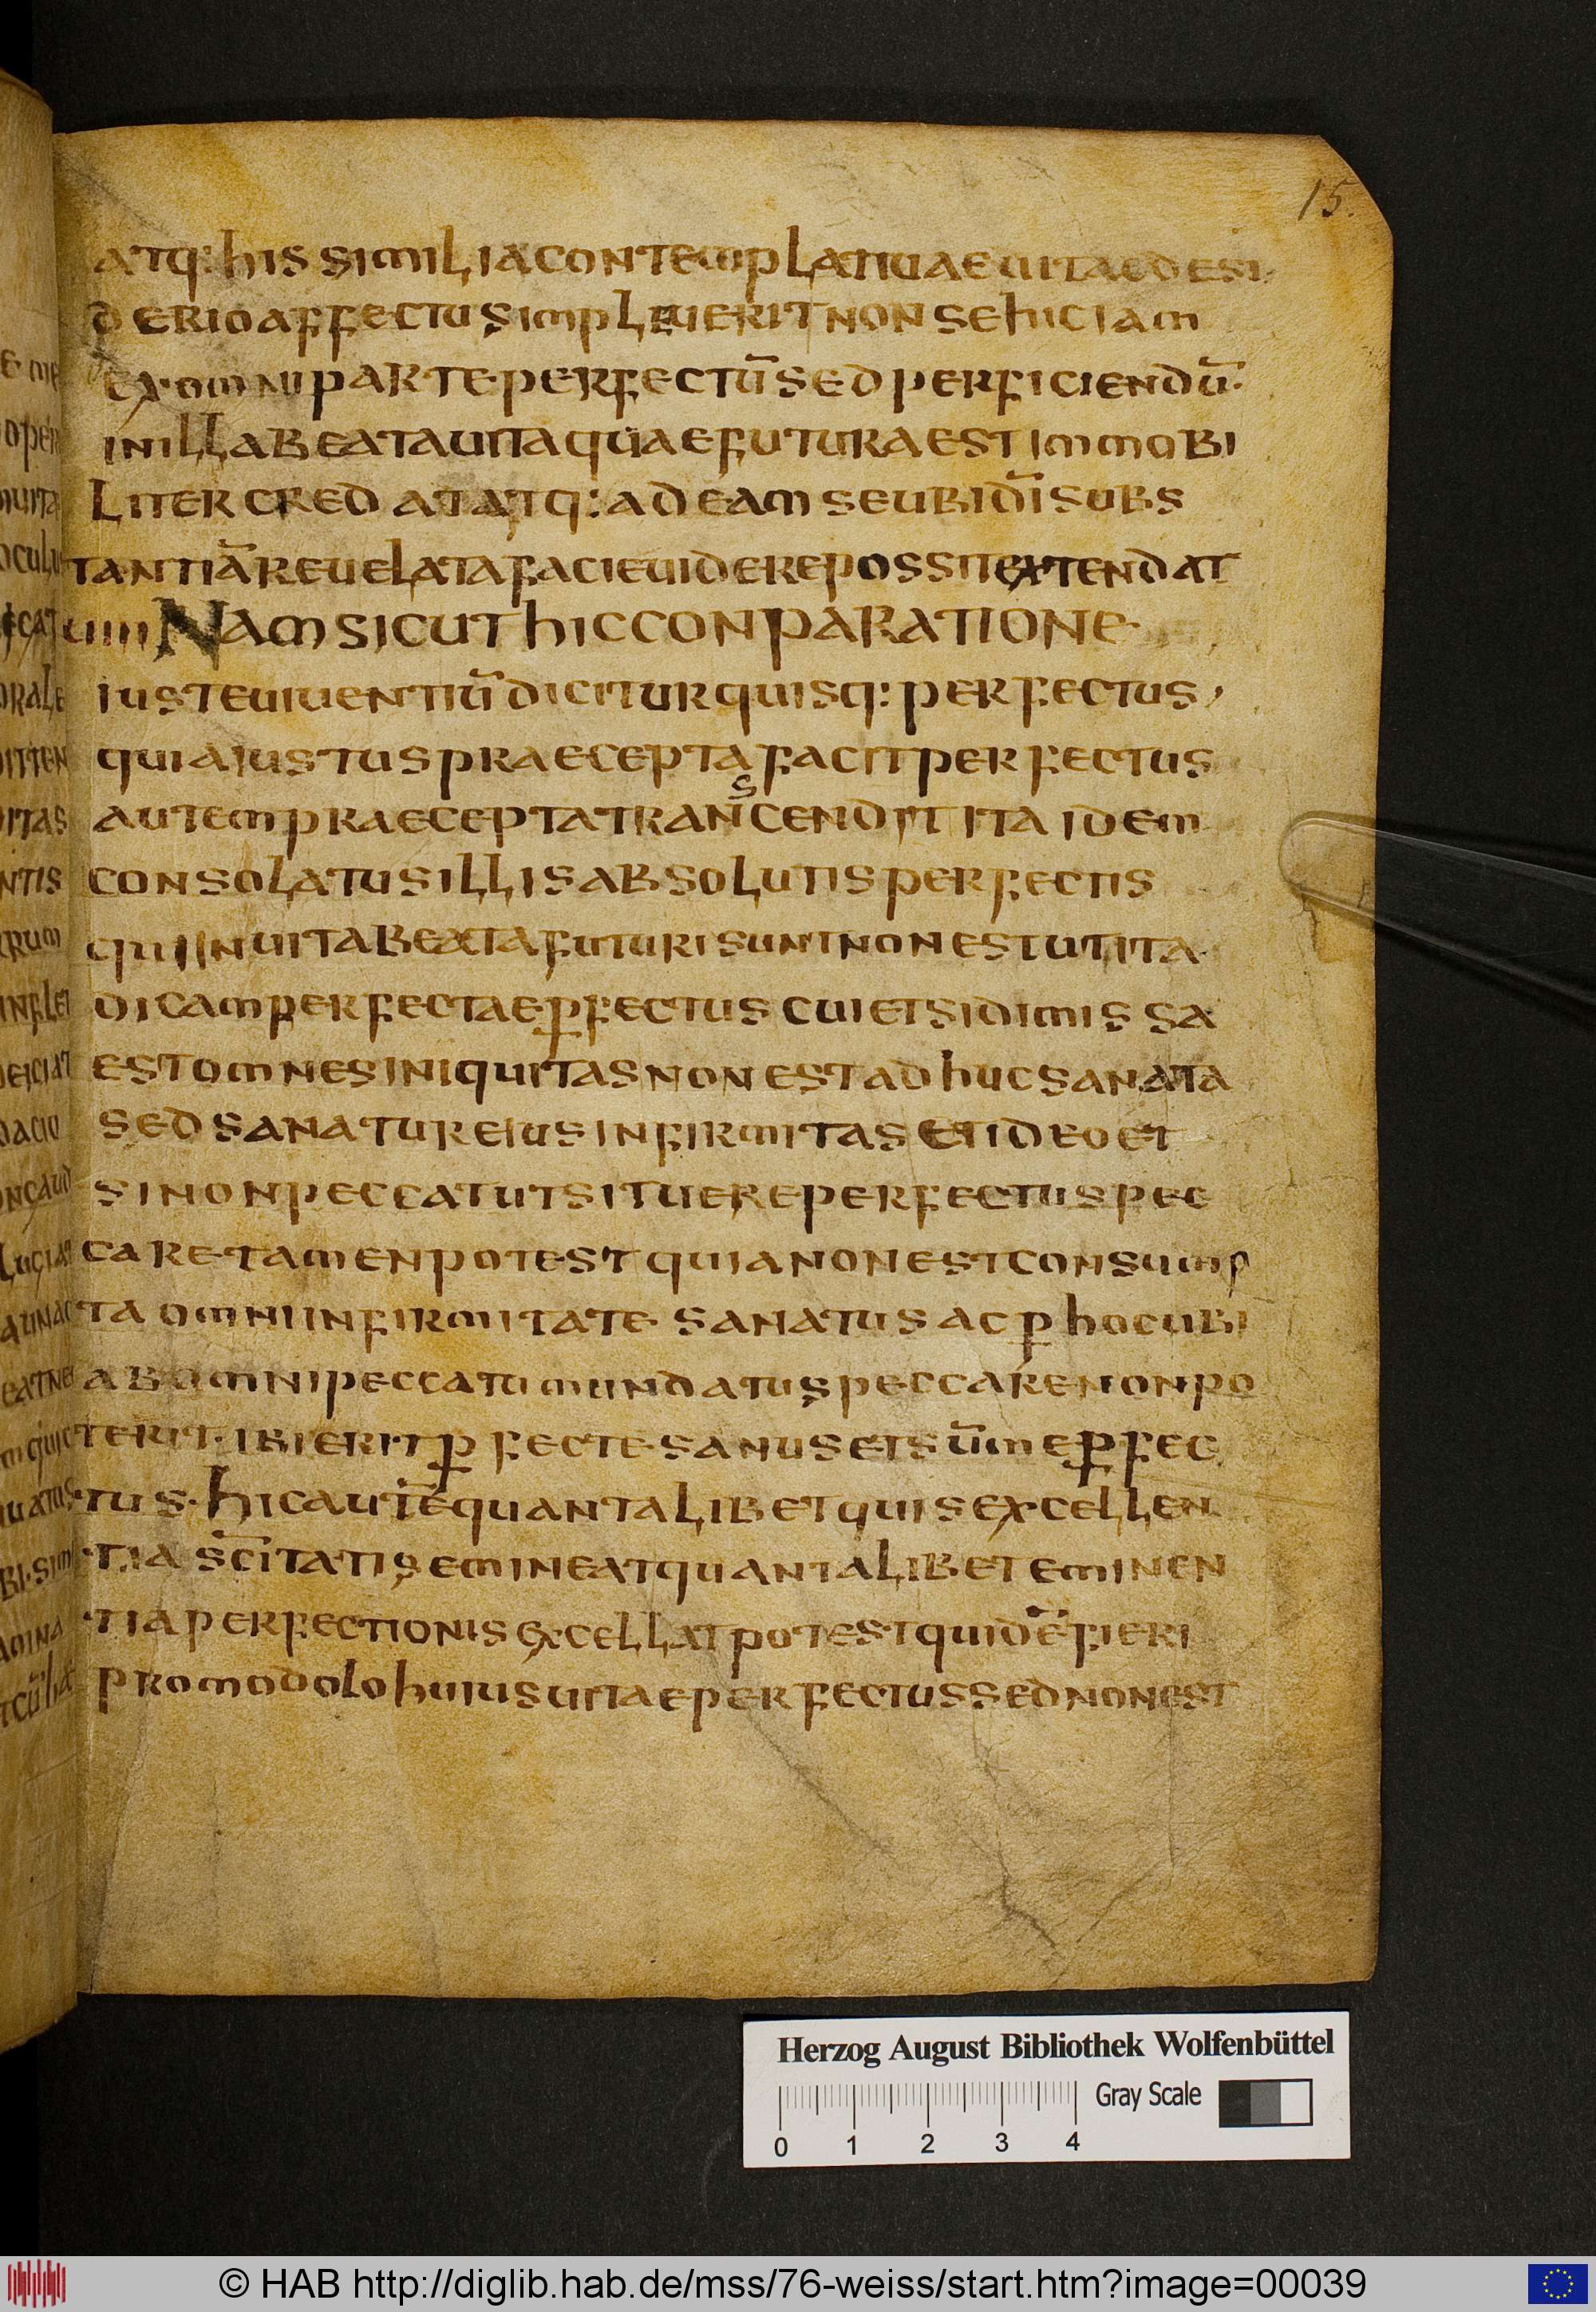 15.
atq: his similia contemplatiuae uitae desi
derio affectus impleuerit non se hic iam
ex omni parte perfectū sed perficiendū.
in illa beata uita quae futura est immobi
liter credat atq: ad eam se ubi dī subs
tantiā reuelata facie uidere possit extendat
uiiii Nam sicut hic conparatione
iuste uiuentiū dicitur quisq: perfectus,
quia iustus praecepta facit perfectus
autem praecepta transcendit ita idem
consolatus illis absolutis perfectis
qui in uita beata futuri sunt non est ut ita
dicam perfectae p̱fectus cui etsi dimissa
est omnes iniquitas non est adhuc sanata
sed sanatur eius infirmitas et ideo et
si non peccat ut sit uere perfectus pec
care tamen potest quia non est consump
ta omni infirmitate sanatus ac p̱ hoc ubi
ab omni peccatu mundatus peccare non po
terit. ibi erit p̱fecte sanus et sūme p̱fec
tus. hic autē quantalibet quis excellen
tia scītatis emineat quantalibet eminen
tia perfectionis excellat potest quidē fieri
pro modolo huius uitae perfectus sed non est
Herzog August Bibliothek Wolfenbüttel
0 1 2 3 4 Gray Scale
© HAB http://diglib.hab.de/mss/76-weiss/start.htm?image=00039